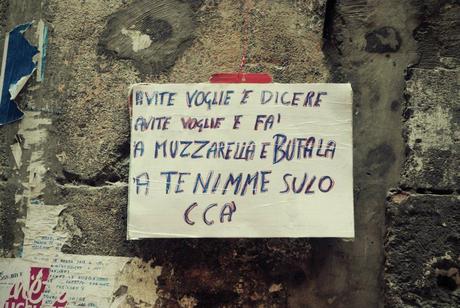 AVITE VOGLIE E' DICERE
AVITE VOGLIE E FA'
'A MUZZARELLA E BUFALA
'A TENIMME SULO
CCA'